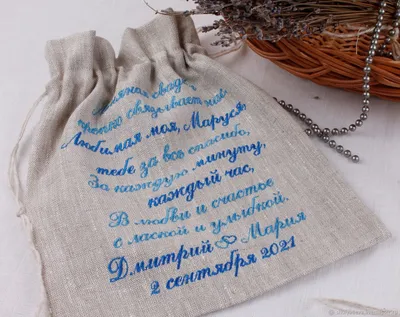 Льняная свадь
прочно связывает нас
Любимая моя, Маруся,
тебе за всё спасибо,
За каждую минуту,
каждый час,
В любви и счастье
с лаской и улыбкой.
Дмитрий Мария
2 сентября 2021